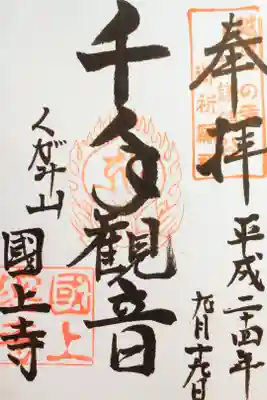 奉拝
平成二十四年
九月十九日
千手觀音
くがみ山
國上寺
國上